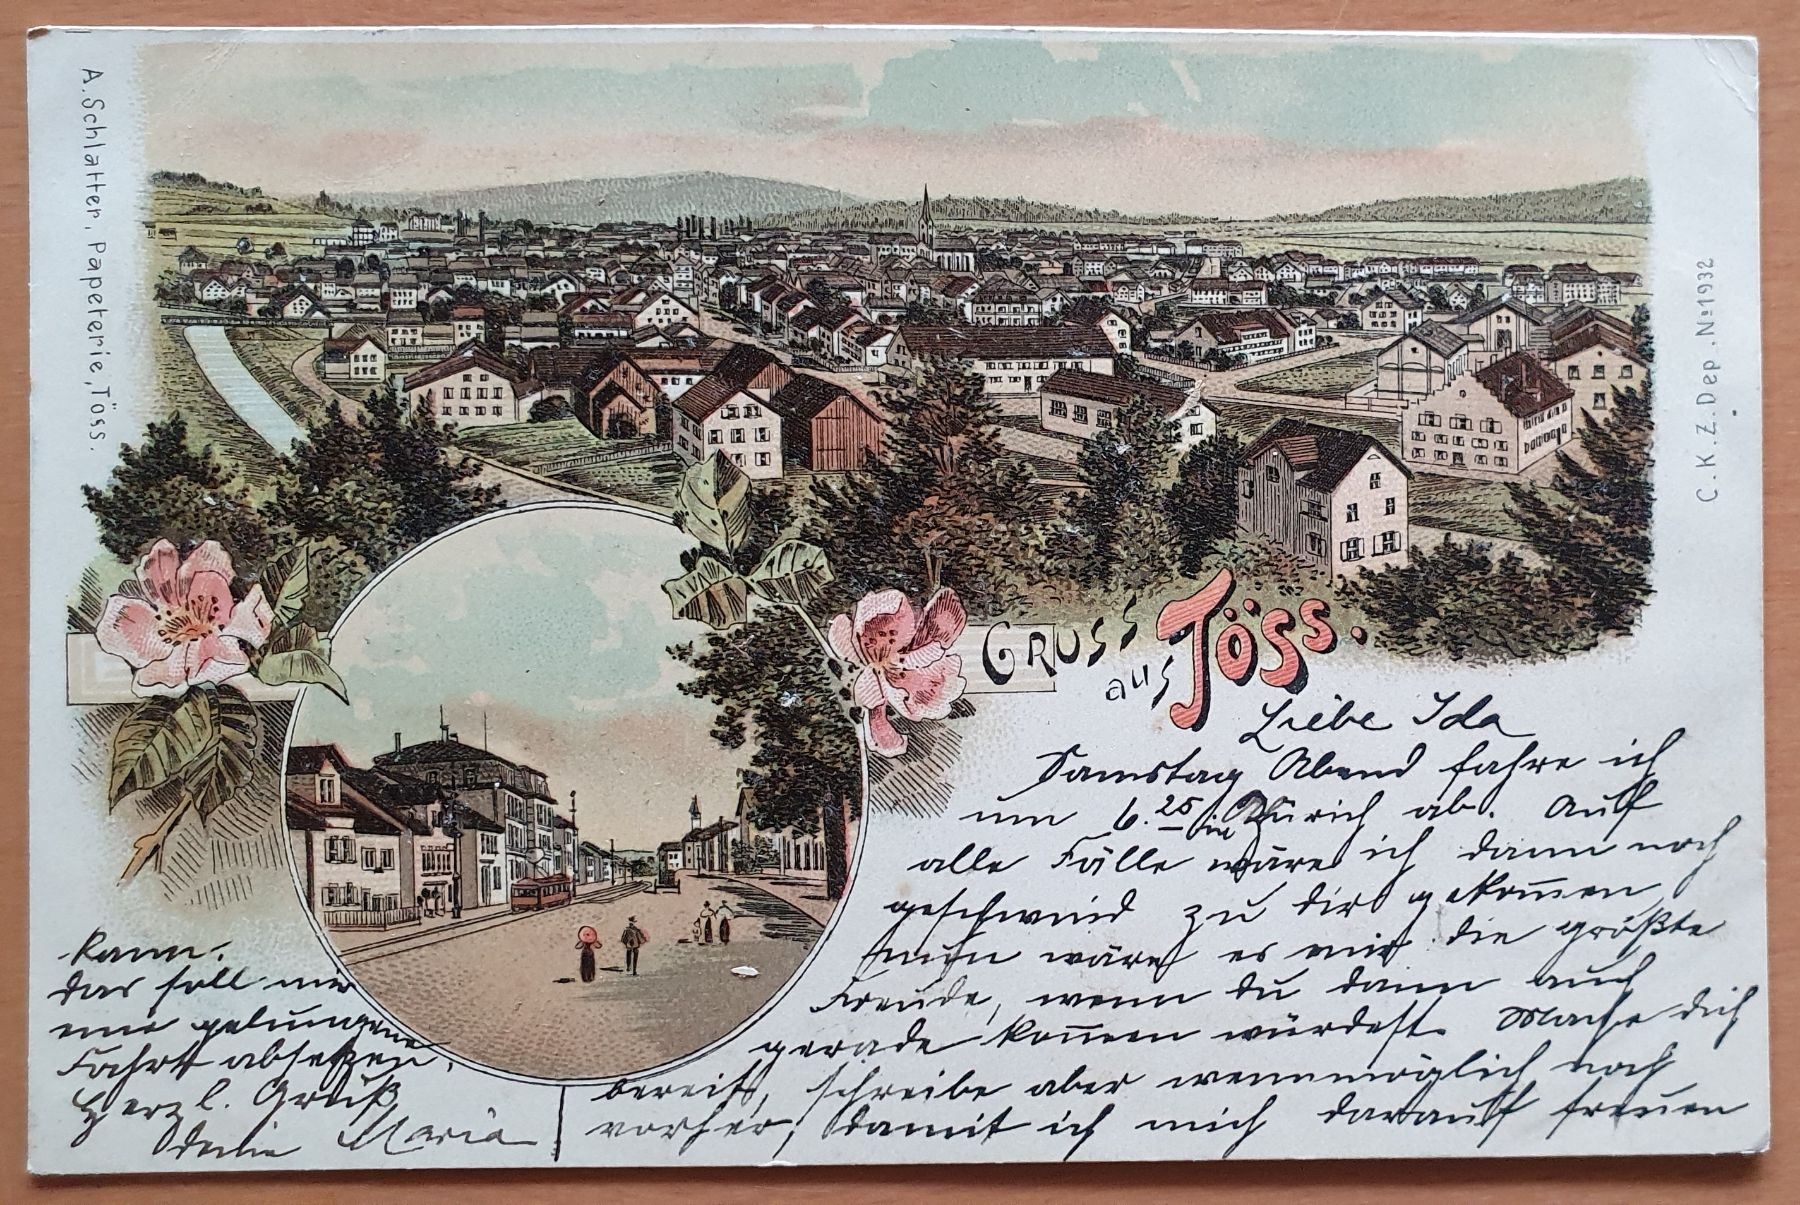 A. Schlatter, Papeterie, Töss.
C. K. Z. Dep. No 1932
GRUSS
aus Töss.
Liebe Ida
Samstag Abend fahre ich
um 6.25 in Zürich ab. Auf
alle Fälle wäre ich dann noch
geschwind zu dir gekom̅en,
nun wäre es mir die größte
Freude, wenn du dann auch
gerade kom̅en würdest. Mache dich
bereit, schreibe aber wennmöglich noch
vorher, damit ich mich darauf freuen
kann.
Das soll mir
eine gelungene
Fahrt absetzen.
Herzl. Gruß
deine Maria